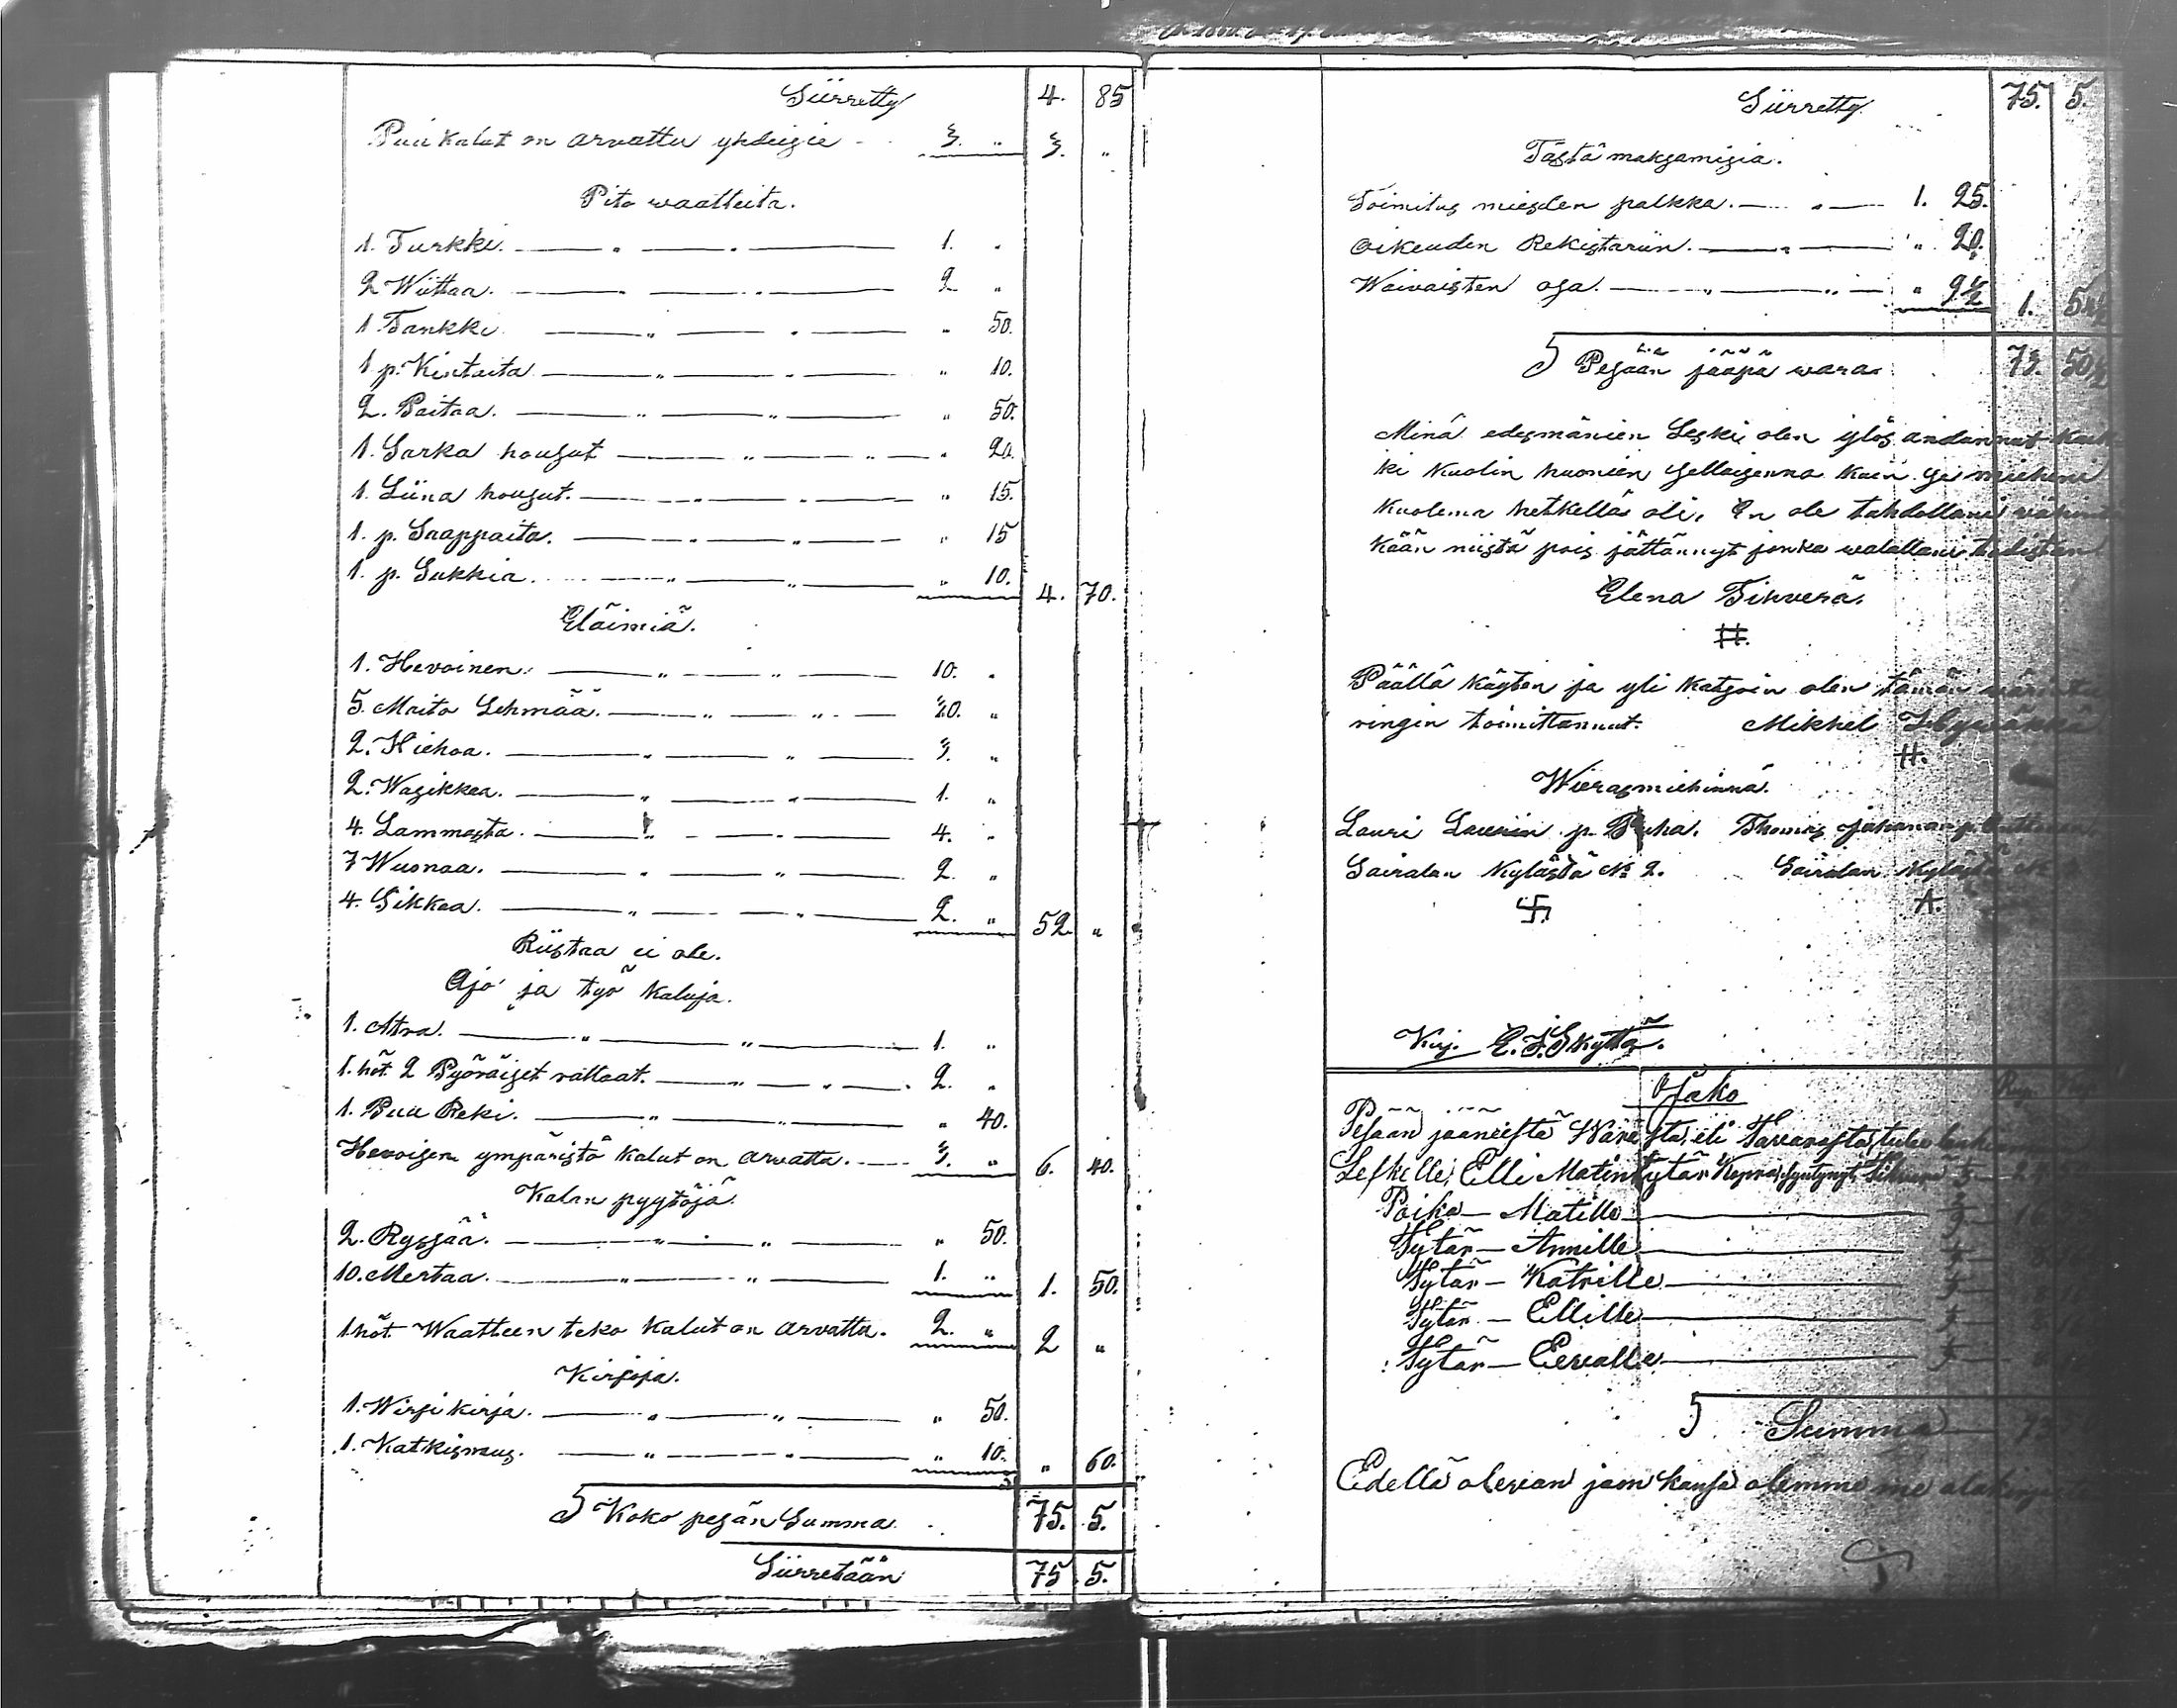 Siirretty 4. 85
Puu kalut on arvattu yhdeisie 3. " 3. "
Pito waatteita.
1. Turkki. 1. "
2 Wiittaa. 2 "
1 Tankki " 50.
1 p. Kintaita " 10.
2. Paitaa. " 50.
1. Sarka housut " 20.
1. Liina housut. " 15.
1. p. Saappaita. " 15
1. p. Sukkia. " 10. 4. 70.
Eläimiä.
1. Hevoinen. 10. "
5. Maito Lehmää. 30. "
2. Hiehoa. 3. "
2. Wasikkaa. 1. "
4. Lammasta. 4. "
7 Wuonaa. 2. "
4. Sikkaa. 2. " 52. "
Riistaa ei ole.
Ajo ja työ kaluja.
1. Atra. 1. "
1. höt 2 Pyöräiset rattaat. 2. "
1. Puu Reki. " 40.
Hevoisen ympäristö kalut on arvattu. 3. " 6. 40.
Kalan pyytöjä.
2. Ryssää. " 50.
10. Mertaa. 1. " 1. 50.
1 höt. Waatteen teko kalut on arvattu. 2. " 2 "
Kirjoja.
1. Wirsi kirja. " 50.
1. Katkismus. " 10. " 60.
Koko pesän Summa 75. 5.
Siirretään 75. 5.
Siirretty 75. 5.
Tästä maksamisia.
Toimitus miesden palkka. 1. 25.
Oikeuden Rekistariin. " 20.
Waivaisten osa. " 9½ 1. 54½
Pesään jääpä wara 73. 50½
Minä edesmänien Leski olen ylös andannut kaik
ki kuolin huonein sellaisenna kuin se mieheni
kuolema hetkellä oli. En ole tahdollani vähint
kään niistä pois jättännyt jonka walallani todistan
Elena Tihverä.
Päällä käyten ja yli katsoin olen tämän
ringin toimittannut. Mikhel
Wierasmiehinnä.
Lauri Laurin p. Thomas Juhanan p.
Sairalan Kylästä № 2. Sairalan Kylästä №
Kirj. E. J. Skyttä.
Ojako
Pesään jääneistä eli Tavarasta, tulee
Leskelle, Elli Matin tytär syntynyt
Poika — Matille
Tytär — Annille
Tytär — Katrille
Tytär — Ellille
Tytär — Eevalle
Summa 73
Edellä olevan jaon kansa olemme me